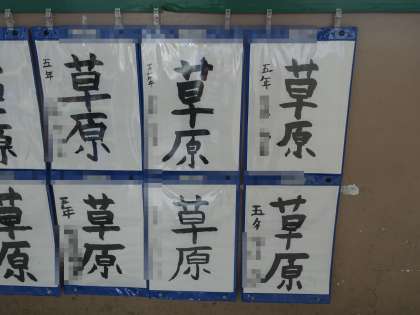 草原
五年
草原
五年
草原
五年
草原
草原
五年
草原
草原
五年
草原